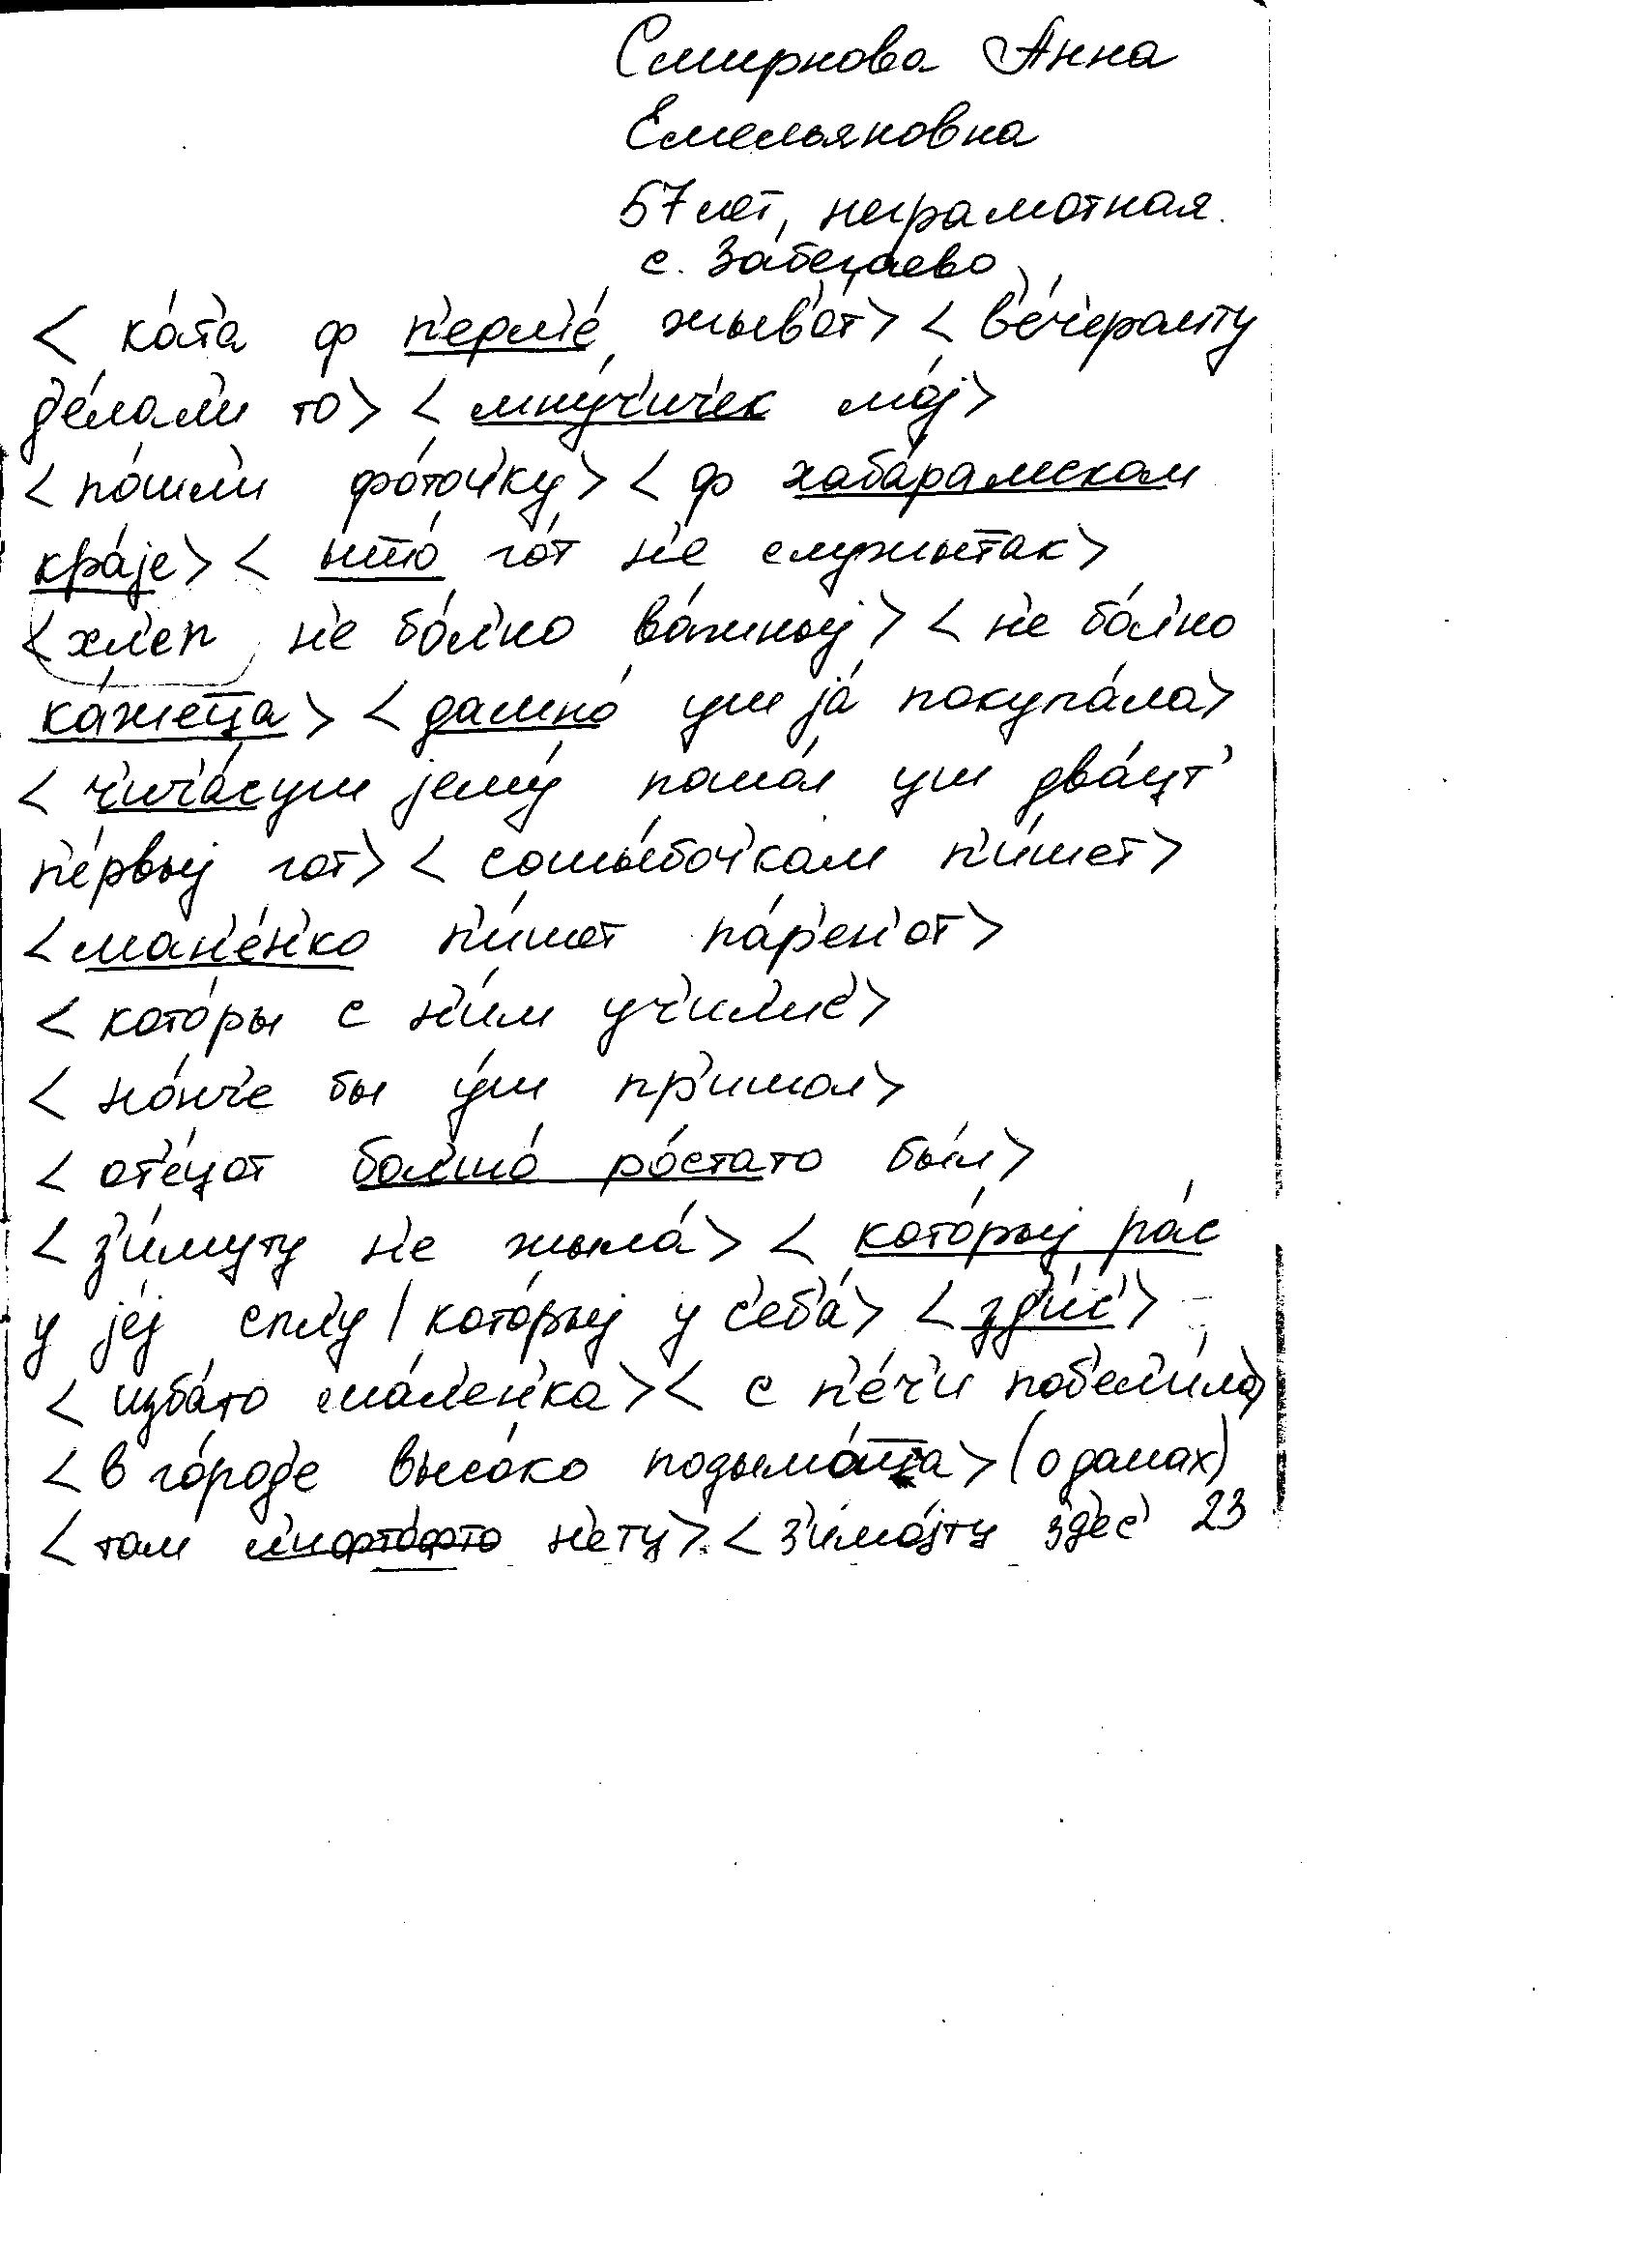 Смирнова Анна
Емельяновна
57 лет, неграмотная.
с. Забегаево
< ко́т'а ф п'ерм'е́ жыв'о́т> < в'е́ч'ерамту
д'е́лал'и то> < мну́ч'ич'ек мо́j>
< по́шл'и фо́точ'ку> < ф хаба́рамском
кра́jе> < ытто́ го́т н'е служыт̄ак>
< хл'еп н'е бо́л'но ва́жныj> < н'е бо́л'но
ка́жец̄а> < дамно́ уш jа́ покупа́ла>
< ч'ич'а́суш jему́ пошо́л уш два́цт'
п'е́рвыj гот> < сошы́боч'кам п'и́шет>
< ман'е́н'ко п'и́шет па́р'ен'от>
< кото́ры с н'и́м уч'ил'ис'>
< но́нч'е бы у́ш пр'ишол>
< от'е́цот бол'шо́ ро́стато бы́л>
< з'и́муту н'е жыла́> < кото́рыj ра́с
у jе́j спл'у / кото́рыj у с'еб'а́> < зд'и́с'>
< изба́то ма́л'ен'ка> < с п'е́ч'и поб'ел'и́ла>
< в го́род'е высо́ко подыма́ц̄а> (о домах)
< там л'ифто́фто н'ету> < з'имо́jту зд'ес' 23